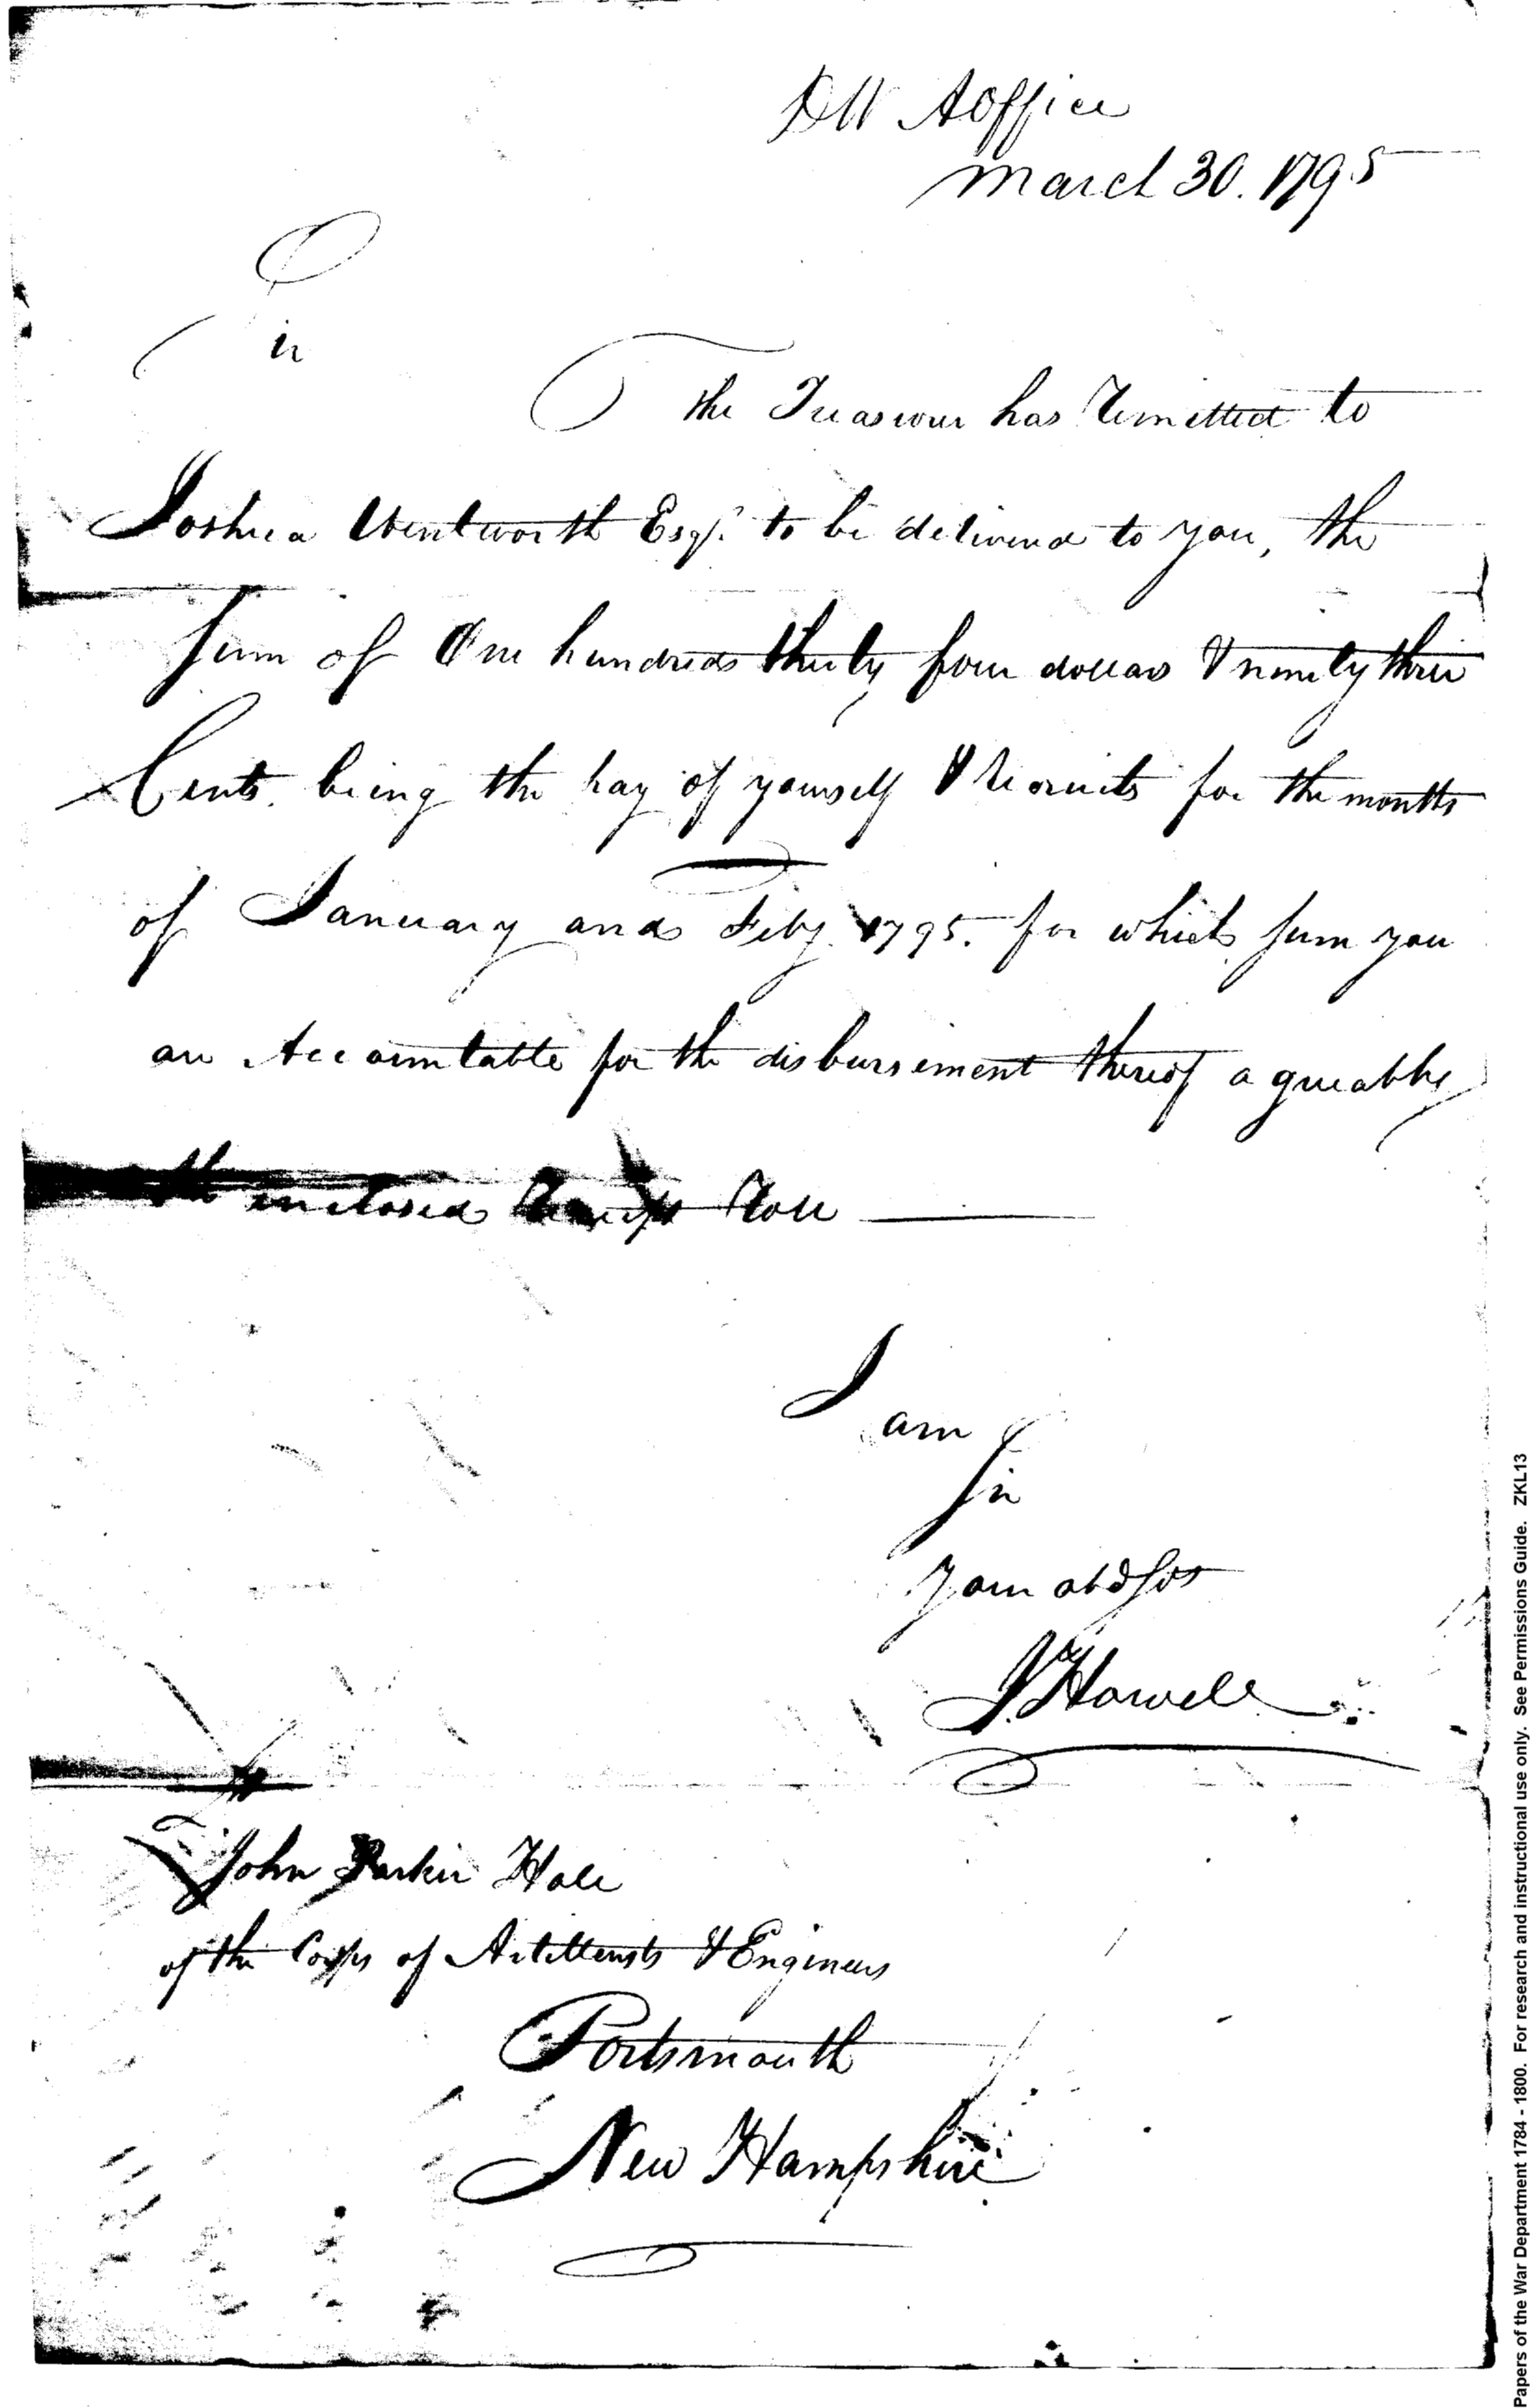 DW A Office
March 30. 1795
Sir
The Treasurer has Remitted to
Joshua Wentworth Esqr. to be delivered to you, the
sum of One hundred thirty four dollars & ninety three
Cents. being the pay of yourself & Recruits for the months
of January and Feby. 1795. for which sum you
are Accountable for the disbursement thereof agreeably
the enclosed Receipt Roll
I am
Sir
Your obd Sert
J Howell
John Parker Hale
of the Corps of Artillerists & Engineers
Portsmouth
New Hampshire
Papers of the War Department 1784 - 1800. For research and instructional use only. See Permissions Guide. ZKL13